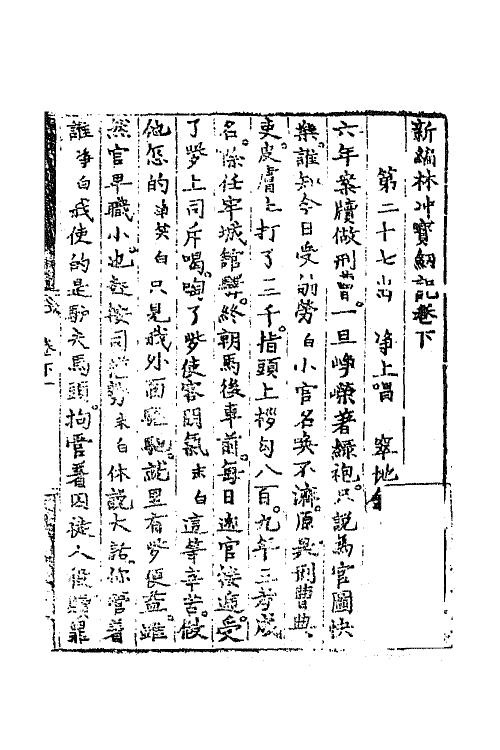 新編林冲寳劍記卷下
第二十七出 净上唱 窣地
六年案牘做刑曹。一旦峥嶸著綠袍。只說爲官圖快
樂。誰知今日受劬勞白小官名喚不濟。原是刑曹典
吏。皮膚上打了三千。指頭上拶勾八百。九年三考成
名。除任牢城館驛。終朝馬後車前。每日送官接逓。受
了些上司斥喝。啕了些使客閒氣末白這等辛苦。做
他怎的净笑白只是我外面驅馳。就里有些便益。雖
然官卑職小。也 按司 勢末白休說大話。你管着
誰净白我使的是馿夫馬頭。拘管着囚徒人役 罪
卷下一